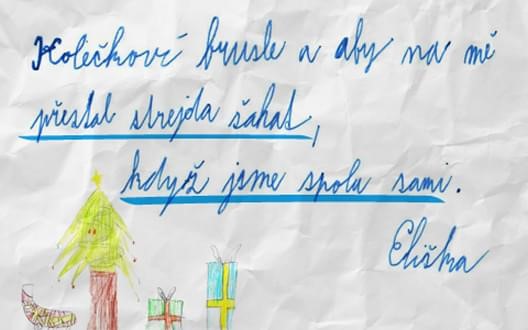 Kolečkové brusle a aby na mě
přestal strejda šahat,
když jsme spolu sami.
Eliška